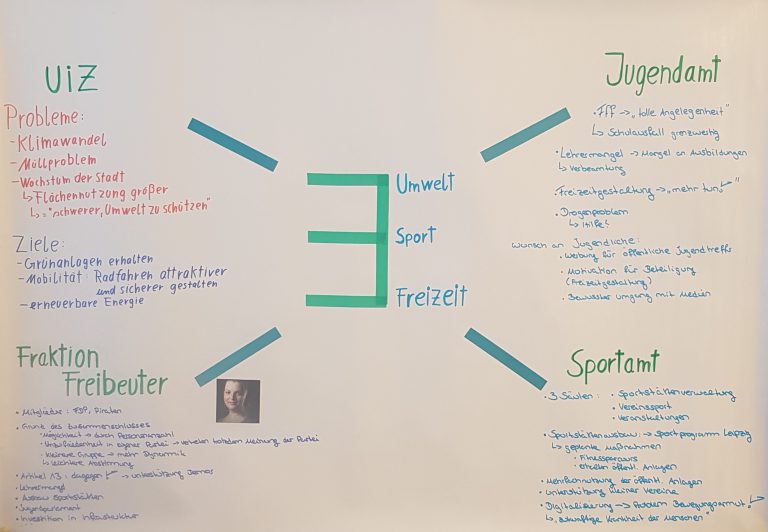 UiZ
Probleme:
- Klimawandel
- Müllproblem
- Wachstum der Stadt
↳ Flächennutzung größer
↳ = "schwerer, Umwelt zu schützen"
Ziele:
- Grünanlagen erhalten
- Mobilität: Radfahren attraktiver
und sicherer gestalten
- erneuerbare Energie
Umwelt
Sport
Freizeit
Jugendamt
• FFF → "tolle Angelegenheit"
↳ Schulausfall grenzwertig
• Lehrermangel → Mangel an Ausbildungen
↳ Verbeamtung
• Freizeitgestaltung → "mehr tun"
• Drogenproblem
↳ Hilfe!
Wunsch an Jugendliche:
• Werbung für öffentliche Jugendtreffs
• Motivation für Beteiligung
(Freizeitgestaltung)
• Bewusster Umgang mit Medien
Fraktion
Freibeuter
• Mitglieder: FDP, Piraten
• Grund des Zusammenschlusses
Möglichkeit → durch Personenanzahl
Unzufriedenheit in eigener Partei → vertreten trotzdem Meinung der Partei
kleinere Gruppe → mehr Dynamik
↳ leichtere Abstimmung
• Artikel 13: dagegen → unterstützung Demos
• Lehrermangel
• Ausbau Sportstätten
• Jugendparlament
• Investition in Infrastruktur
Sportamt
• 3 Säulen: • Sportstättenverwaltung
• Vereinssport
• Veranstaltungen
• Sportstättenausbau: → Sportprogramm Leipzig
↳ geplante Maßnahmen
• Fitnessparcours
• öffentl. Anlagen
• Mehrfachnutzung der öffentl. Anlagen
• Unterstützung kleiner Vereine
• Digitalisierung → Problem Bewegungsarmut
↳ "zukünftige Krankheit der Menschen"